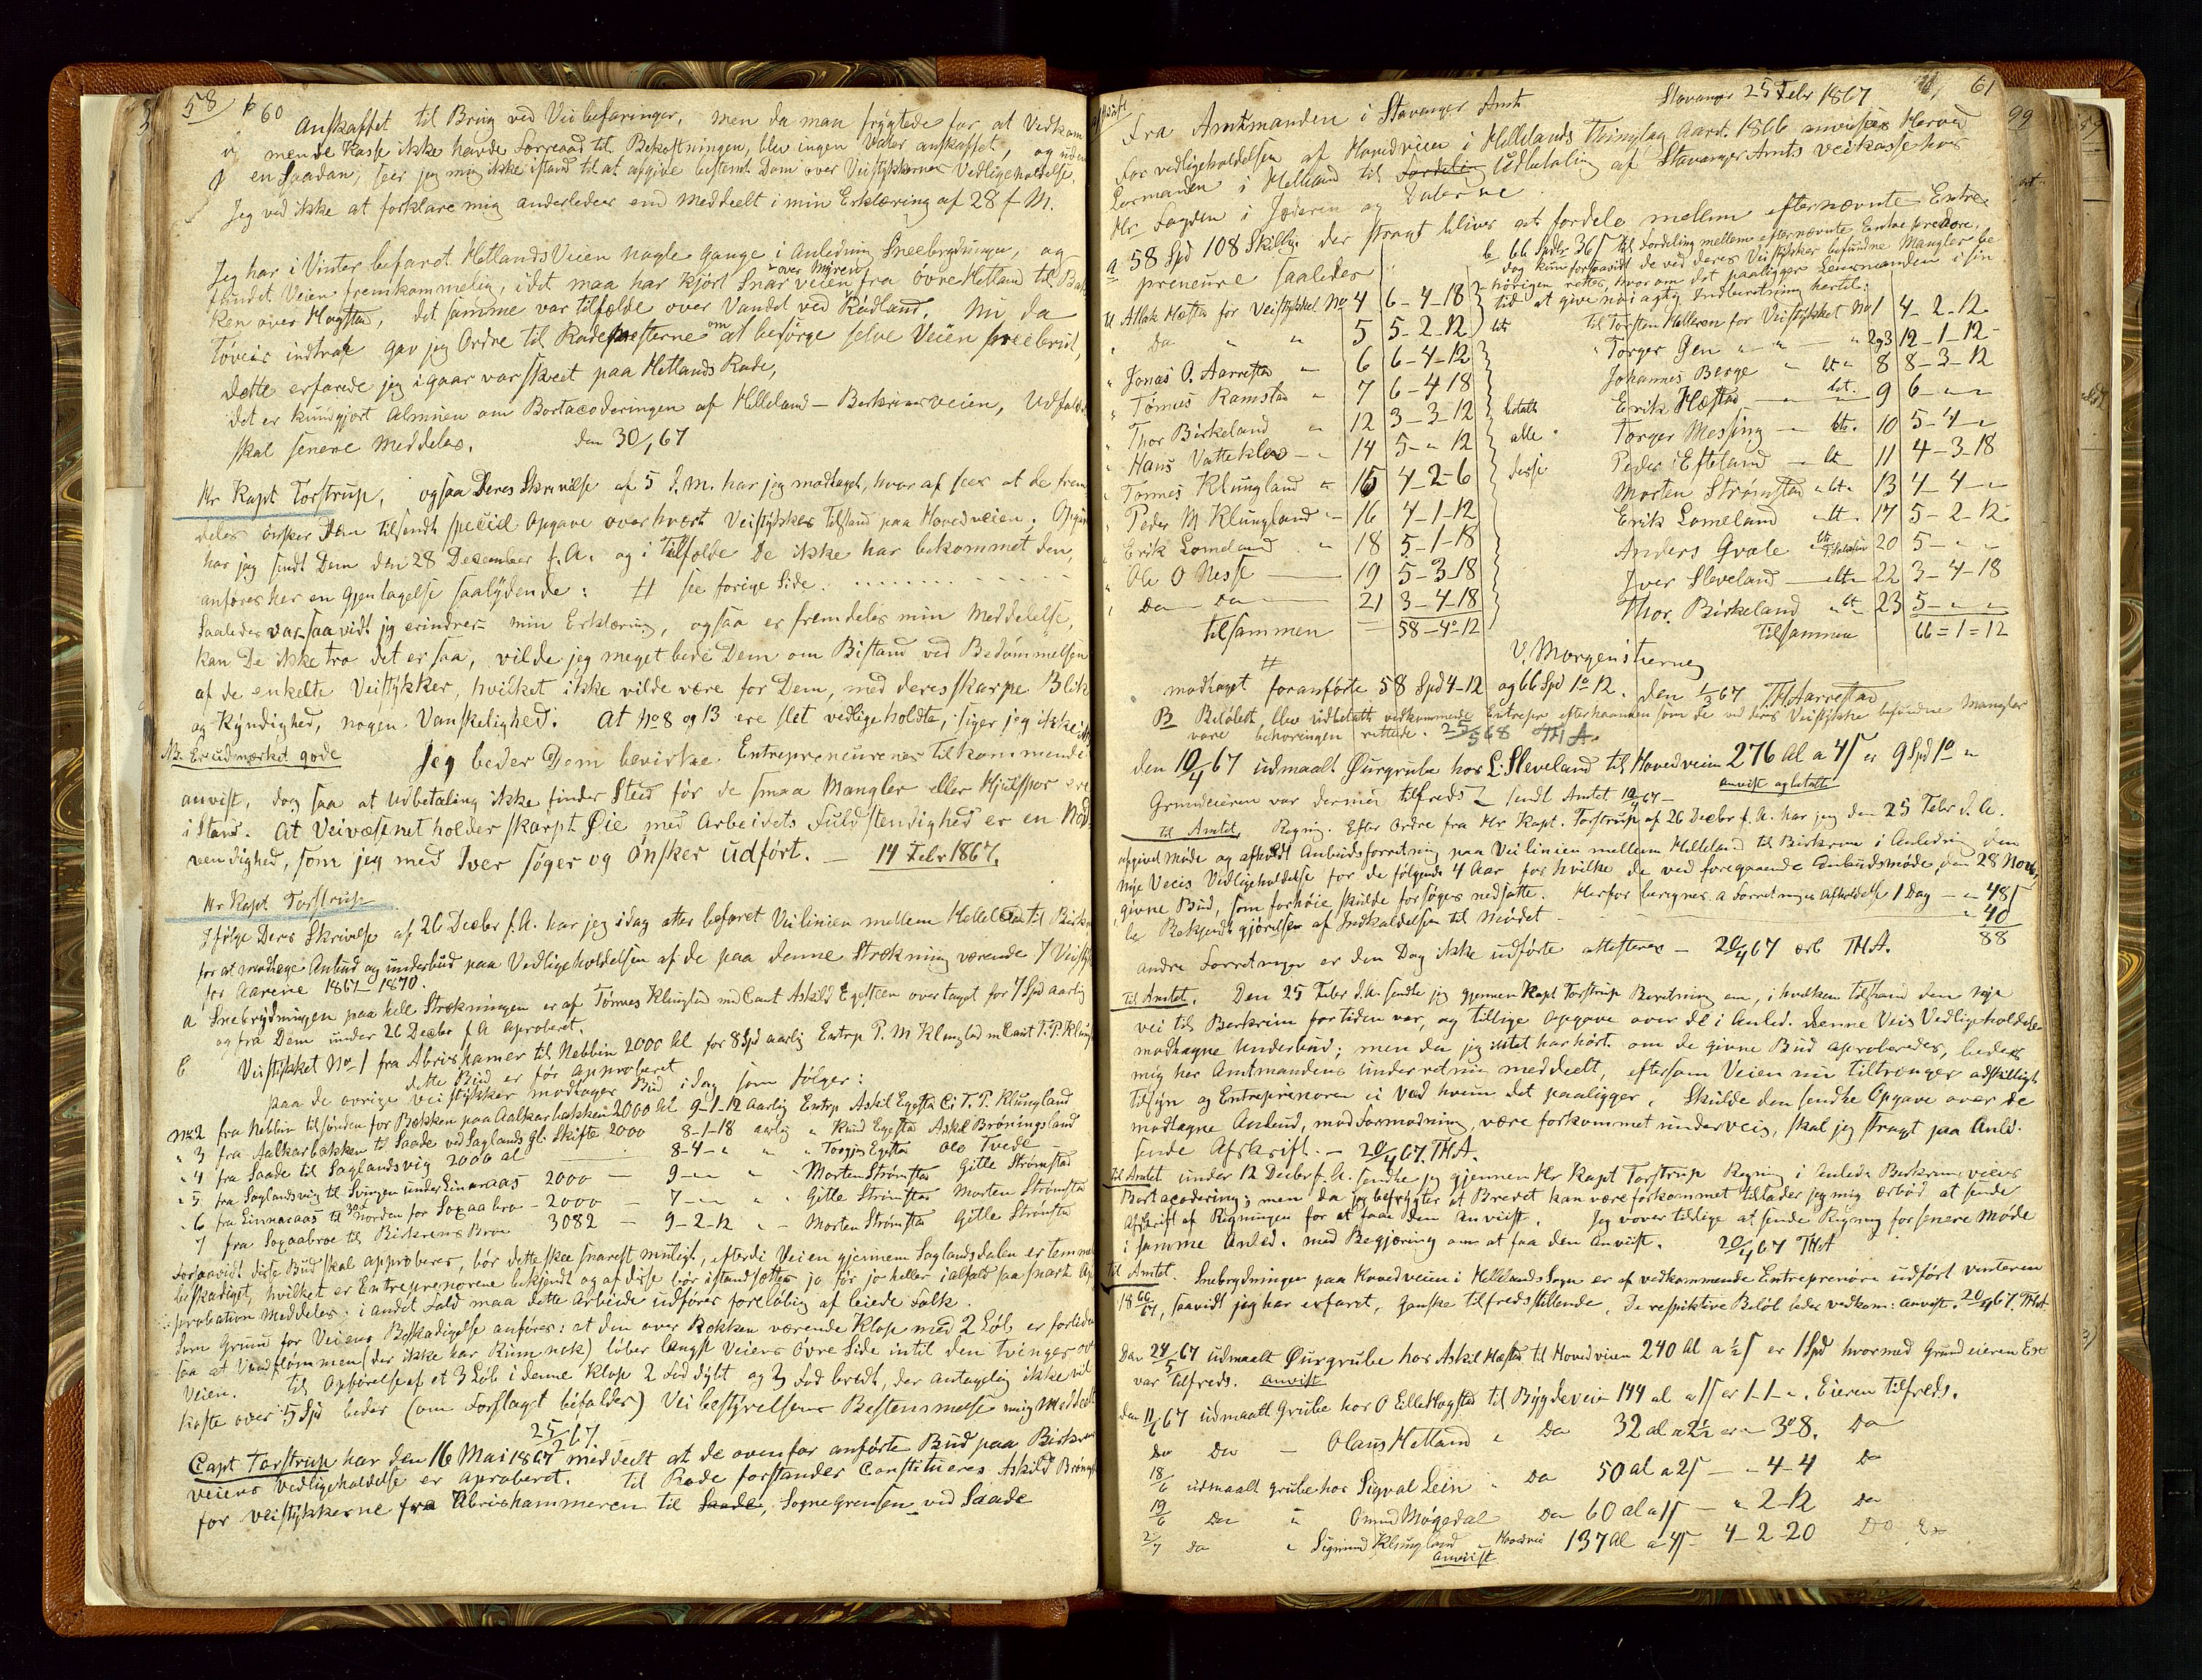 58 60
Anskaffet til Brug ved Veibefaringer, men da man frygtede for at Vedkom
mende Kasse ikke havde Forraad til Bekostningen, blev ingen Vater anskaffet, og uden
en Saadan, seer jeg mig ikke istand til at afgive bestemt Dom over Veistykkernes Vedligeholdelse.
Jeg ved ikke at forklare mig anderledes end meddeelt i min Erklæring af 28 f. M.
Jeg har i Vinter befaret Hetlands Veien nogle Gange i Anledning Sneebrydningen, og
fundet Veien fremkommelig, idet maa har kjört Snarveien over Myren fra övre Hetland til Bak
ken over Hogstad, det samme var tilfælde over Vandet ved Rödland. Nu da
Töveir indtraf gav jeg Ordre til Rodemesterne om at besörge selve Veien sneebrudt,
dette erfarede jeg igaar var skeet paa Hetlands Rode,
det er kundgjort Almuen om Bortacoderingen af Helleland - Berkrems veien, Udfaldet
skal senere Meddeles. den 30/1 67
Hr Kapt Torstrup, ogsaa Deres Skrivelse af 5 d. M. har jeg modtaget, hvoraf sees at de frem
deles önsker Dem tilsendt speciel Opgave over hvert Veistykkes Tilstand paa Hovedveien. Opgave
har jeg sendt Dem den 28 December f. A. og i Tilfælde De ikke har bekommet den,
anföres her en Gjentagelse saalydende: # see forige Side.
Saaledes var saavidt jeg erindrer min Erklæring, ogsaa er fremdeles min Meddelelse,
kan De ikke tro det er saa, vilde jeg meget bede Dem om Bistand ved Bedömmelsen
af de enkelte Veistykker, hvilket ikke vilde være for Dem, med deres skarpe Blik
og Kyndighed, nogen Vanskelighed. At No 8 og 13 ere slet vedligeholdte, siger jeg ikke
NB. Er udmærket gode Jeg beder Dem bevirke Entrepreneurenes Tilkommende
anvist, dog saa at udbetaling ikke finder Sted för de smaa Mangler eller Hjulspor ere
i Stand. At Veivæsenet holder skarpt Öie med Arbeidets Fuldstendighed er en Nöd
vendighed, som jeg med Iver söger og Önsker udfört. — 14 Febr 1867.
Hr Kapt Torstrup
Ifölge Deres Skrivelse af 26 Decbr f. A. har jeg idag atter befaret Veilinien mellem Helleland til Birkrem
for at modtage Anbud og underbud paa Vedligeholdelsen af de paa denne Strekning værende 7 Veistyk
for Aarene 1867-1870.
a Snebrydningen paa hele Strekningen er af Tönnes Klungland med Caut Askild Egesteen overtaget for 7 Spd aarlig
og fra Dem under 26 Decbr f A aproberet.
b Veistykket No 1 fra Abrishamer til Nebbin 2000 Al for 8 Spd aarlig Entrp P. M Klungland m Caut T. P. Klungl
dette Bud er för approberet
paa de övrige Veistykker modtages Bud idag som fölger:
No 2 fra Nebbin til sönden for Bækken paa Aalkarbakken 2000 Al 9-1-12 aarlig Entrp Askil Egesta C: T. P. Klungland
" 3 fra Aalkarbakken til Saade ved Saglands gl. Skifte 2000 8-1-18 aarlig " Knud Egesta Askil Bröningsland
" 4 fra Saade til Saglandsvig 2000 al 8-4-" " " Torgjer Egesta Ole Tvede
" 5 fra Saglandsvig til Svingen under Linaraas 2000 — 9-"-" " - Morten Strömstad Gitle Strömstad
" 6 fra Linnaraas til 30 al Norden for Soxaabro - 2000 — 7-"-" " - Gitle Strömstad Morten Strömstad
7 fra Soxaabroe til Birkrems Broe 3082 — 9-2-12 " - Morten Strömstad Gitle Strömstad
Forsaavidt disse Bud skal approberes, bör dette skee snarest muligt, efterdi Veien gjennem Saglandsdalen er temmel
beskadiget, hvilket er Entreprenörene bekjendt og af disse bör istandsættes jo för jo heller ialfald saa snart Ap
probation Meddeles; i andet Fald maa dette Arbeide udföres forelöbig af leiede Folk.
Som Grund for Veiens Beskadigelse anföres: at den over Bekken værende Klop med 2 Löb er forliden
saa at Vandflömmen (der ikke har Rum nok) löber langst Veiens Övre Side intil den tvinges over
Veien. Til Opförelse af et 3 Löb i denne Klop 2 Fod dybt og 3 Fod bredt, der antagelig ikke vil
koste over 5 Spd beder (om Forslaget bifaldes) Vei bestyrelsens Bestemmelse mig Meddeelt
25/2 67.
Capt Torstrup har den 16 Mai 1867 meddeelt at de ovenfor anförte Bud paa Birkrem
veiens Vedligeholdelse er aproberet. Til Rode forstander Constitueres Askild Bröning
for veistykkerne fra Abrishammeren til Saade, Sognegrensen ved Saade
61
Stavanger 25 Febr 1867
Fra Amtmanden i Stavanger Amt
For vedligeholdelsen af Hovedveien i Hellelands Thinglag Aaret 1866 anvises Herved
Lensmanden i Helleland til Fordeling Udbetaling af Stavanger Amts Veikasse hos
Hr Fogden i Jæderen og Dalerne
a 58 Spd 108 Skilling der straxt bliver at fordele mellem efternævnte Entre
preneure saaledes
b 66 Spdr 36 s til Fordeling mellem efternævnte Entrepreneure,
dog kun forsaavidt de ved deres Veistykker befundne Mangler be
hörigen rettes, hvorom det paaligger Lensmanden i sin
tid at give nöiagtig Indberetning hertil.
til Atlak Hæstad for Veistykket No 4 6-4-18
" Do " " 5 5-2-12
" Jonas O. Aarrestad " 6 6-4-12
" Tönnes Ramstad " 7 6-4-18
" Thor Birkeland " 12 3-3-12
" Hans Vatteklev - " 14 5-"-12
" Tönnes Klungland " 15 4-2-6
" Peder M Klungland - " 16 4-1-12
" Erik Lomeland " 18 5-1-18
" Ole O Nesse — 19 5-3-18
" Do — Do — 21 3-4-18
Tilsammen 58-4-12
betalt
alle
disse
Til Torsten Helleren for Veistykket No 1 4-2-12
" Torger Gya " " — " 2 og 3 12-1-12
Johannes Berge " bt " 8 8-3-12
Erik Hæstad — bt. 9 6-"-"
Torger Messing — bt. 10 5-4-"
Peder Efteland — bt 11 4-3-18
Morten Strömstad " bt " 13 4-4-"
Erik Lomeland " bt - 17 5-2-12
Anders Gvale 20 5-"-"
Iver Sleveland — bt 22 3-4-18
Thor. Birkeland " bt 23 5-"-"
Tilsammen 66=1=12
V. Morgenstierne
# modtaget foranförte 58 Spd 4-12 og 66 Spd 1-12. den 1/3 67 TH Aarrestad
NB Belöbet blev udbetalt vedkommende Entrepr efterhaanden som de ved deres Veistykke befundne Mangler
vare behörigen rettede. 25/5 68 THA.
den 10/4 67 udmaalt Öurgrube hos L. Sleveland til Hovedveien 276 Al a 4 s er 9 Spd 1 "
Grundeieren var dermed tilfreds - sendt Amtet 10/4 67 — anvist og betalt
til Amtet. Regning. Efter Ordre fra Hr Kapt. Torstrup af 26 Decbr f. A. har jeg den 25 Febr d. A.
afgivet Möde og afholdt Anbudsforretning paa Veilinien mellem Helleland til Birkrem i Anledning den
nye Veies Vedligeholdelse for de fölgende 4 Aar for hvilke de ved foregaaende Anbudsmöde, den 28 Novb
givne Bud, som forhöie, skulde forsöges nedsatte. Herfor beregnes a Forretningens Afholdelse 1 Dag — " 48 s
b Bekjendtgjörelsen af Indkaldelsen til Mödet " 40
88
andre Forretninger er den Dag ikke udförte attesteres — 20/4 67 erb THA.
til Amtet. Den 25 Febr d. A. sendte jeg gjennem Kapt Torstrup Beretning om, i hvilken tilstand den nye
vei til Berkrem for tiden var, og tillige Opgave over de i Anled. denne Veis Vedligeholdelse
modtagne Underbud; men da jeg intet har hört om de givne Bud aproberedes, bedes
mig her Amtmandens Underretning meddeelt, eftersom Veien nu tiltrænger adskilligt
tilsyn og Entreprenören ei ved hvem det paaligger. Skulde den sendte Opgave over de
modtagne Anbud, mod Formodning, være forkommet underveis, skal jeg straxt paa Anld.
sende Afskrift. — 20/4 67. THA.
til Amtet under 12 Decbr f. A. sendte jeg gjennem Hr Kapt Torstrup Regning i Anledn Berkrems veiens
Bortacodering; men da jeg befrygter at Brevet kan være forkommet tillader jeg mig ærböd. at sende
Afskrift af Regningen for at faae den anviist. Jeg vover tillige at sende Regning for senere Möde
i samme Anled. med Begjæring om at faa den anviist. 20/4 67 THA
til Amtet. Snebrydningen paa Hovedveien i Hellelands Sogn er af vedkommende Entreprenöre udfört vinteren
1866/67, saavidt jeg har erfaret, ganske tilfredsstillende. De respektive Belöb bedes vedkom: anvist. 20/4 67. THA
Den 24/5 67 udmaalt Öurgrube hos Askil Hæstad til Hovedveien 240 Al a ½ s er 1 Spd hvormed Grundeieren
var tilfreds. anvist
Den 11/6 67 udmaalt Grube hos O Eille Hogstad til Bygdeveie 144 al a 1 s er 1-1-". Eieren tilfreds.
Do Do — Olaus Hetland " Do 32 al a 2½ er " 3-8. Do
18/6 udmaalt grube hos Sigval Lein " Do 50 al a 2 s — " - 4-4 Do
19/6 Do " Omund Mögedal Do 60 al a 1 s — " 2-12 Do
2/7 Do " Sigmund Klungland Hovedvei 137 Al a 4 s - 4-2-20 Do
anviist